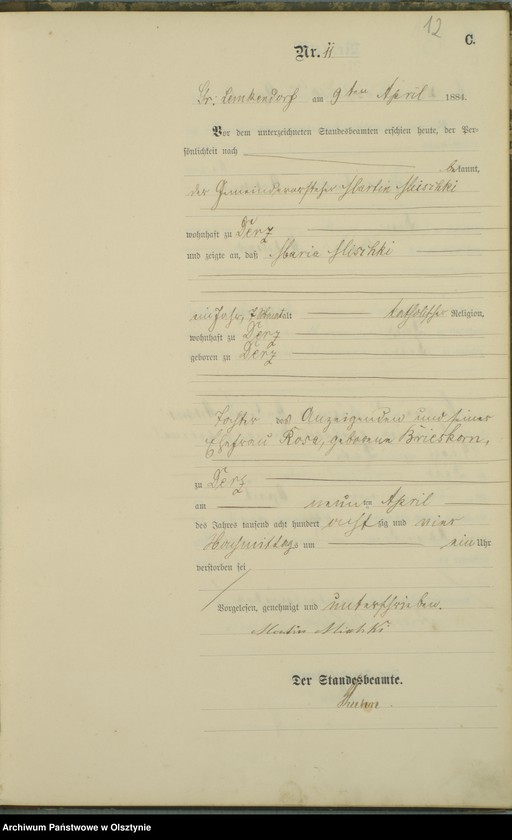 12
C.
Nr. 11
Gr: Lemkendorf am 9ten April 1884.
Vor dem unterzeichneten Standesbeamten erschien heute, der Per-
sönlichkeit nach
bekannt,
der Gemeindevorsteher Martin
wohnhaft zu Derz
und zeigte an, daß Maria
ein Jahr, alt katholischer Religion,
wohnhaft zu Derz
geboren zu Derz
Tochter des Anzeigenden und seiner
Ehefrau Rosa, geborene Brieskorn,
zu Derz
am neunten April
des Jahres tausend acht hundert acht zig und vier
Nachmittags um ein Uhr
verstorben sei
Vorgelesen, genehmigt und unterschrieben.
Martin
Der Standesbeamte.
Archiwum Państwowe w Olsztynie